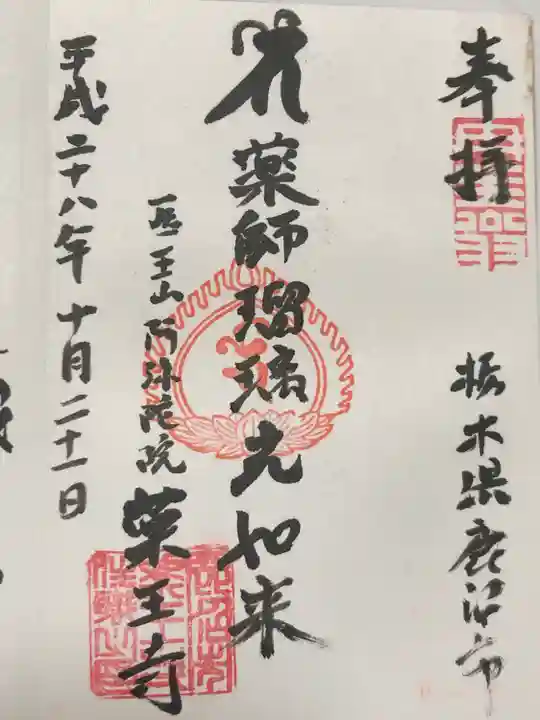 奉拝
栃木県鹿沼市
薬師瑠璃光如来
医王山阿弥陀院
薬王寺
平成二十八年十月二十一日